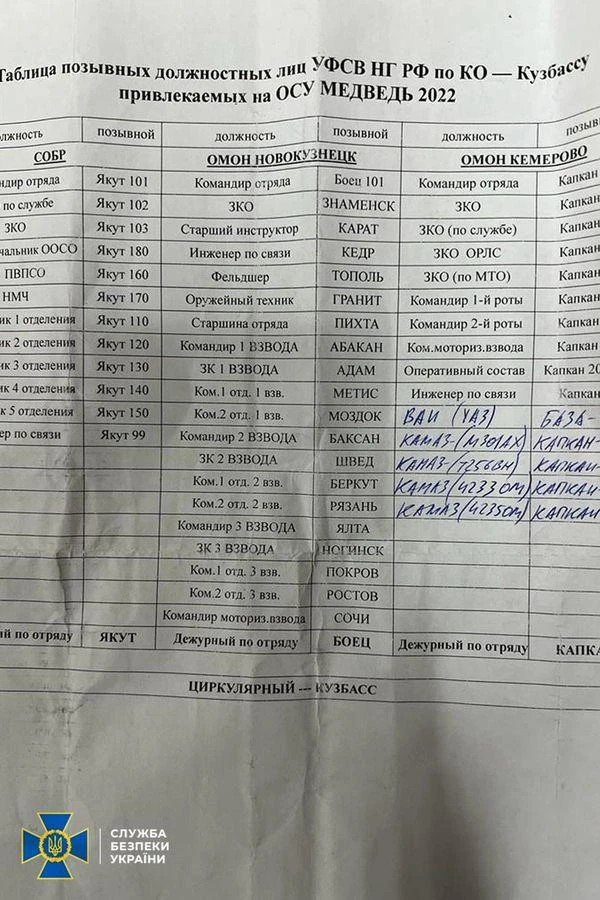 Таблица позывных должностных лиц УФСВ НГ РФ по КО — Кузбассу
привлекаемых на ОСУ МЕДВЕДЬ 2022
позывной должность позывной должность
СОБР ОМОН НОВОКУЗНЕЦК ОМОН КЕМЕРОВО
отряда Якут 101 Командир отряда Боец 101 Командир отряда Капкан
по службе Якут 102 ЗКО ЗНАМЕНСК ЗКО Капкан
ЗКО Якут 103 Старший инструктор КАРАТ ЗКО (по службе) Капкан
ООСО Якут 180 Инженер по связи КЕДР ЗКО ОРЛС Капкан
ПВПСО Якут 160 Фельдшер ТОПОЛЬ ЗКО (по МТО) Капкан
НМЧ Якут 170 Оружейный техник ГРАНИТ Командир 1-й роты Капкан
1 отделения Якут 110 Старшина отряда ПИХТА Командир 2-й роты Капкан
2 отделения Якут 120 Командир 1 ВЗВОДА АБАКАН Ком.моториз.взвода Капкан
3 отделения Якут 130 ЗК 1 ВЗВОДА АДАМ Оперативный состав Капкан
4 отделения Якут 140 Ком.1 отд. 1 взв. МЕТИС Инженер по связи Капкан
5 отделения Якут 150 Ком.2 отд. 1 взв. МОЗДОК ВАИ (УАЗ) БАЗА-
по связи Якут 99 Командир 2 ВЗВОДА БАКСАН КАМАЗ-(М301АХ) КАПКАН-
ЗК 2 ВЗВОДА ШВЕД КАМАЗ-(Т256ВН) КАПКАН-
Ком.1 отд. 2 взв. БЕРКУТ КАМАЗ/(4233ОМ) КАПКАН-
Ком.2 отд. 2 взв. РЯЗАНЬ КАМАЗ/(4235ОМ) КАПКАН-
Командир 3 ВЗВОДА ЯЛТА
ЗК 3 ВЗВОДА НОГИНСК
Ком.1 отд. 3 взв. ПОКРОВ
Ком.2 отд. 3 взв. РОСТОВ
Командир моториз.взвода СОЧИ
по отряду ЯКУТ Дежурный по отряду БОЕЦ Дежурный по отряду
ЦИРКУЛЯРНЫЙ --- КУЗБАСС
СЛУЖБА
БЕЗПЕКИ
УКРАЇНИ